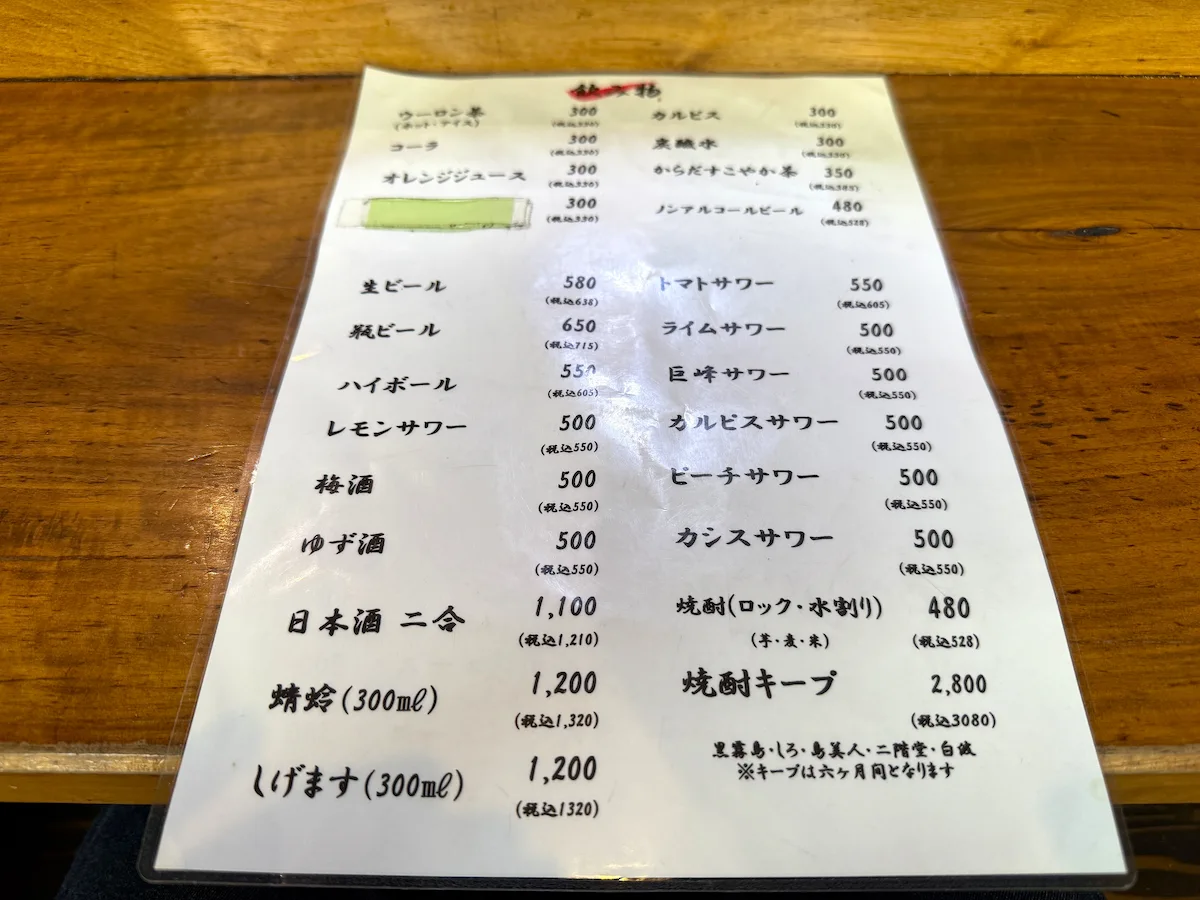 飲み物
ウーロン茶 300 カルピス 300
(ホット・アイス) (税込330) (税込330)
コーラ 300 炭酸水 300
(税込330) (税込330)
オレンジジュース 300 からだすこやか茶 350
(税込330) (税込385)
300 ノンアルコールビール 480
(税込330) (税込528)
生ビール 580 トマトサワー 550
(税込638) (税込605)
瓶ビール 650 ライムサワー 500
(税込715) (税込550)
ハイボール 550 巨峰サワー 500
(税込605) (税込550)
レモンサワー 500 カルピスサワー 500
(税込550) (税込550)
梅酒 500 ピーチサワー 500
(税込550) (税込550)
ゆず酒 500 カシスサワー 500
(税込550) (税込550)
日本酒 二合 1,100 焼酎(ロック・水割り) 480
(税込1,210) (芋・麦・米) (税込528)
蜻蛉(300㎖) 1,200 焼酎キープ 2,800
(税込1,320) (税込3080)
しげます(300㎖) 1,200 黒霧島・しろ・島美人・二階堂・白波
(税込1320) ※キープは六ヶ月間となります